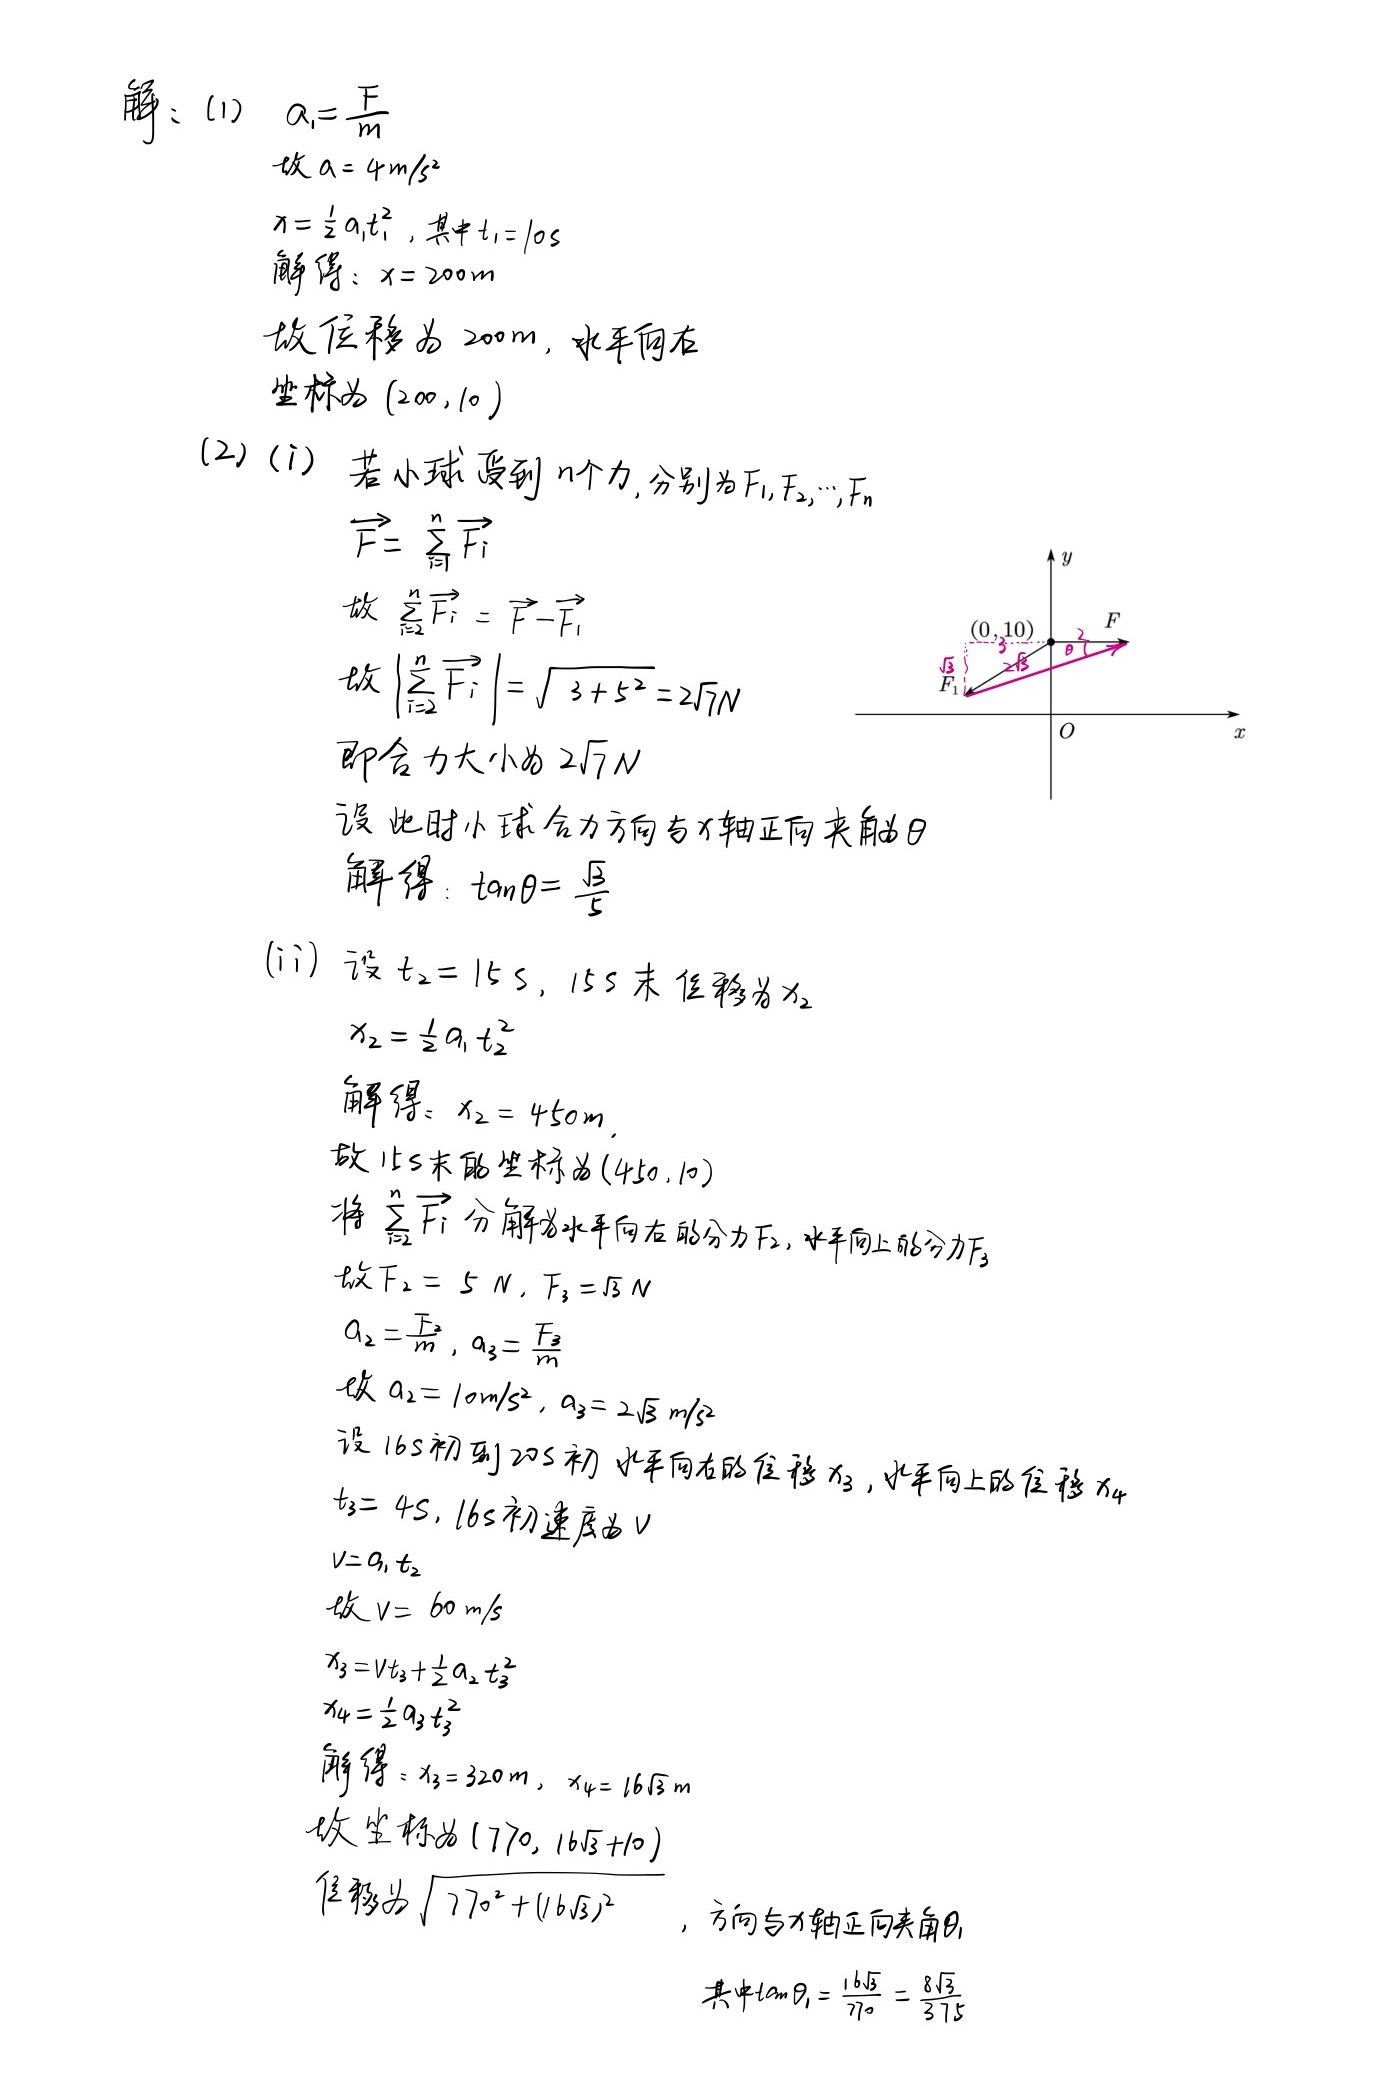 解：(1) a₁=F/m
故a=4m/s²
x=½a₁t₁²，其中t₁=10s
解得：x=200m
故位移为200m，水平向右
坐标为(200,10)
(2)(i) 若小球受到n个力，分别为F₁,F₂,…,Fn
F⃗=∑ⁿᵢ₌₁F⃗ᵢ
故∑ⁿᵢ₌₂F⃗ᵢ=F⃗-F⃗₁
故|∑ⁿᵢ₌₂F⃗ᵢ|=√(3+5²)=2√7N
即合力大小为2√7N
设此时小球合力方向与x轴正向夹角为θ
解得：tanθ=√3/5
y
(0,10)
F
3
2
θ
√3
2√3
F₁
O
x
(ii) 设t₂=15s，15s末位移为x₂
x₂=½a₁t₂²
解得：x₂=450m.
故15s末的坐标为(450,10)
将∑ⁿᵢ₌₂F⃗ᵢ分解为水平向右的分力F₂，水平向上的分力F₃
故F₂=5N，F₃=√3N
a₂=F₂/m，a₃=F₃/m
故a₂=10m/s²，a₃=2√3m/s²
设16s初到20s初水平向右的位移x₃，水平向上的位移x₄
t₃=4s，16s初速度为v
v=a₁t₂
故v=60m/s
x₃=vt₃+½a₂t₃²
x₄=½a₃t₃²
解得：x₃=320m，x₄=16√3m
故坐标为(770,16√3+10)
位移为√(770²+(16√3)²)，方向与x轴正向夹角θ₁
其中tanθ₁=16√3/770=8√3/375